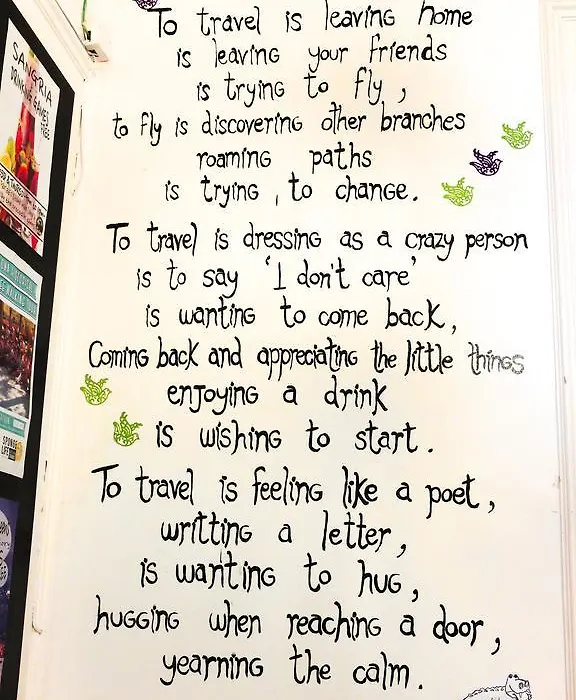 To travel is leaving home
is leaving your friends
is trying to fly,
to fly is discovering other branches
roaming paths
is trying, to change.
To travel is dressing as a crazy person
is to say 'I don't care'
is wanting to come back,
Coming back and appreciating the little things
enjoying a drink
is wishing to start.
To travel is feeling like a poet,
writting a letter,
is wanting to hug,
hugging when reaching a door,
yearning the calm.
SANGRIA
DRINKING GAMES